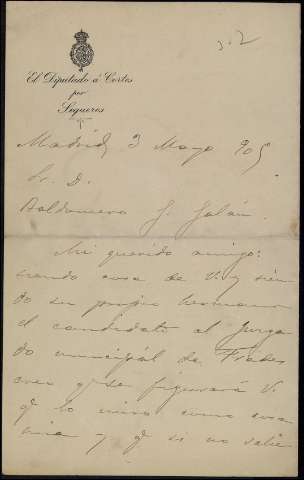 312
El Diputado á Cortes
por
Sequeros
Madrid, 3 Mayo 905
Sr. D.
Baldomero G. Galán.
Mi querido amigo:
siendo cosa de V. y sien
do su propio hermano
el candidato al Juzga
do municipál de Frades
creo qe se figurará V.
qe lo miro como cosa
mia y qe si no sale